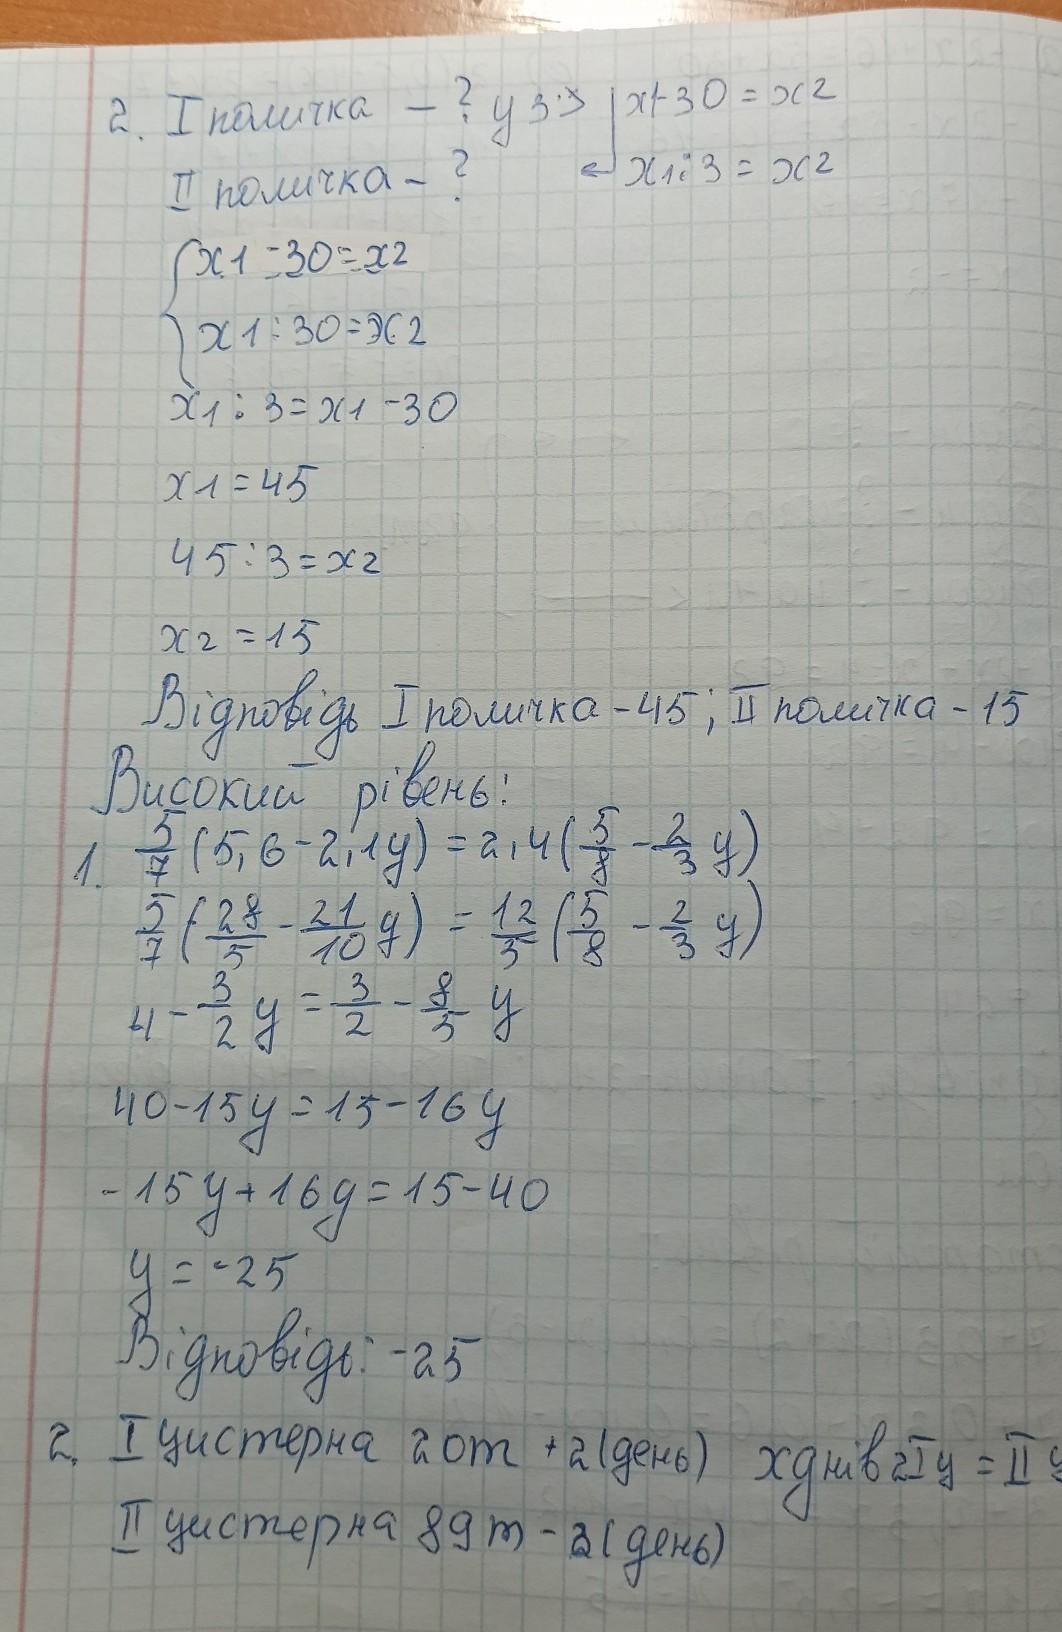 2. I поличка - ? у 3 > x+30 = x2
II поличка - ? x1:3 = x2
x1 - 30 = x2
x1 : 30 = x2
x1 : 3 = x1 - 30
x1 = 45
45 : 3 = x2
x2 = 15
Відповідь I поличка - 45; II поличка - 15
Високий рівень:
1. 5/7 (5,6 - 2,1y) = 2,4 (5/8 - 2/3 y)
5/7 (28/5 - 21/10 y) = 12/5 (5/8 - 2/3 y)
4 - 3/2 y = 3/2 - 8/5 y
40 - 15y = 15 - 16y
-15y + 16y = 15 - 40
y = -25
Відповідь: -25
2. I цистерна 20т + 2 (день) x днів 2I ц = II ц
II цистерна 89т - 3 (день)